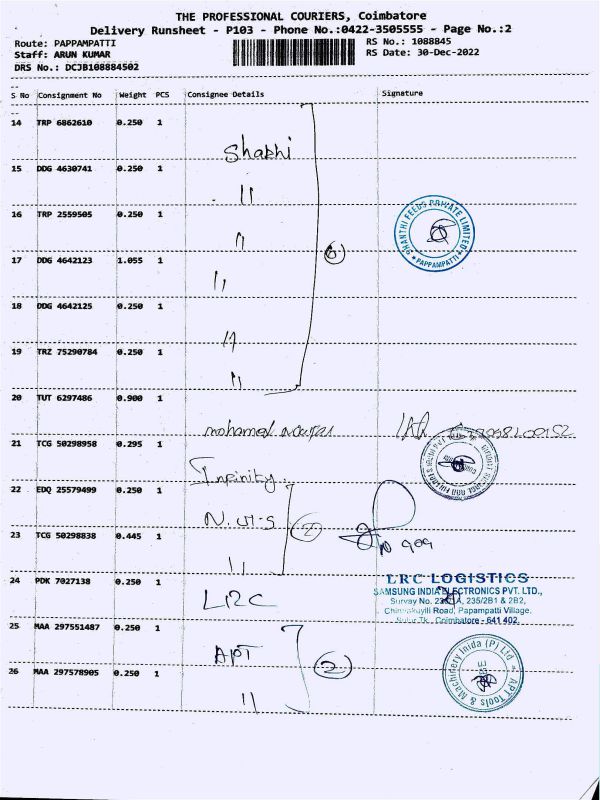 THE PROFESSIONAL COURIERS, Coimbatore
Delivery Runsheet - P103 - Phone No.:0422-3505555 - Page No.:2
Route: PAPPAMPATTI
RS No.: 1088845
Staff: ARUN KUMAR
RS Date: 30-Dec-2022
DRS No.: DCJB108884502
S No Consignment No Weight PCS Consignee Details Signature
14 TRP 6862610 0.250 1
Shanhi
15 DDG 4630741 0.250 1
"
16 TRP 2559505 0.250 1
SHANTHI FEEDS PRIVATE LIMITED
* PAPPAMPATTI *
"
17 DDG 4642123 1.055 1
6
"
18 DDG 4642125 0.250 1
"
19 TRZ 75290784 0.250 1
"
20 TUT 6297486 0.900 1
mohamed
21 TCG 50298958 0.295 1
Infinity
22 EDQ 25579499 0.250 1
2
23 TCG 50298838 0.445 1
"
909
24 PDK 7027138 0.250 1
LRC
LRC LOGISTICS
SAMSUNG INDIA ELECTRONICS PVT. LTD.,
Survay No. 235/2B1 & 2B2,
Road, Papampatti Village,
Sulur Tk., Coimbatore - 641 402.
25 MAA 297551487 0.250 1
APT
2
26 MAA 297578905 0.250 1
"
APT Tools & Machinery Inida (P) Ltd